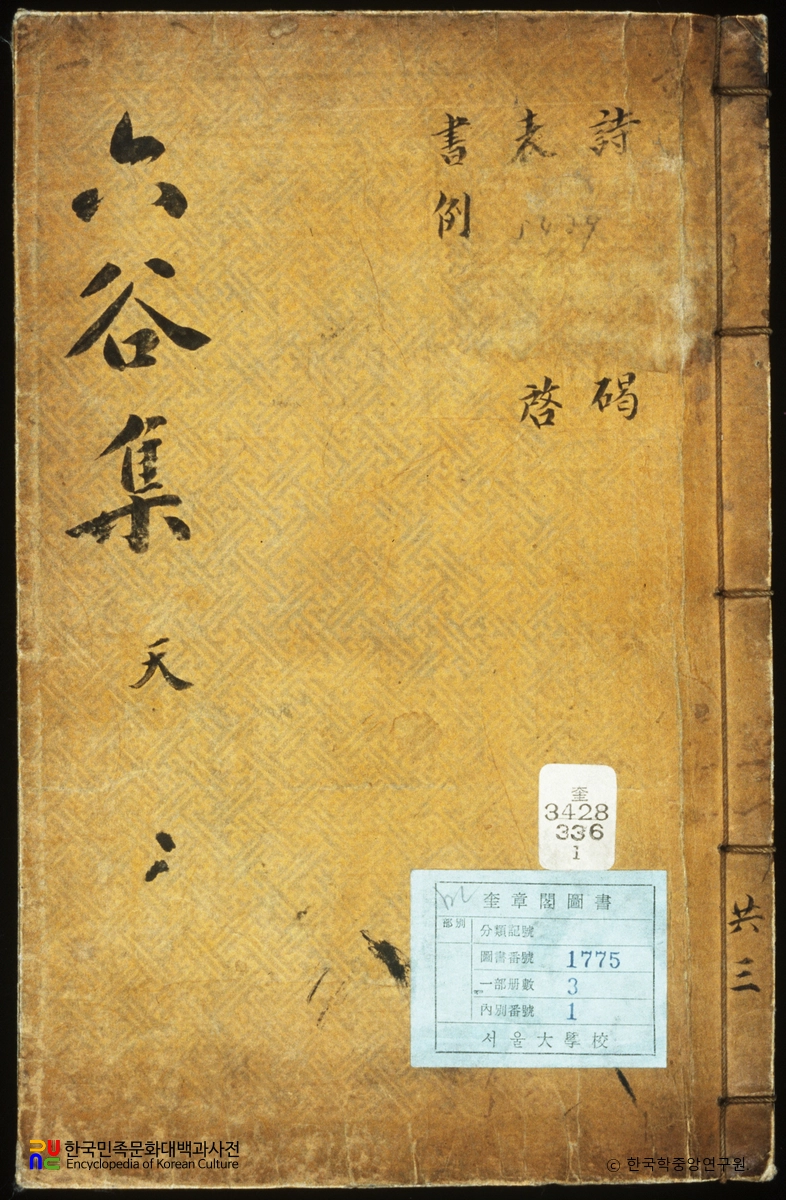 六谷集 天
詩 碣
表 啓
書例
1429
奎
3428
336
1
奎章閣圖書
部別
分類記號
圖書番號 1775
一部册數 3
內別番號 1
서울大學校
共三
한국민족문화대백과사전
Encyclopedia of Korean Culture
© 한국학중앙연구원